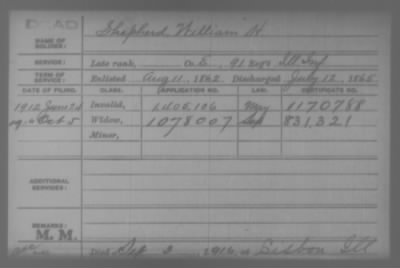 DEAD
NAME OF SOLDIER: Shephard William H.
SERVICE: Late rank, Co. E, 91 Reg't Ill Inf
TERM OF SERVICE: Enlisted Aug 11, 1862 Discharged July 12, 1865
DATE OF FILING. CLASS. APPLICATION NO. LAW. CERTIFICATE NO.
1912 June 24 Invalid, 1405106 May 1170788
Oct 5 Widow, 1078007 Sep 831,321
Minor,
ADDITIONAL SERVICES:
REMARKS:
M. M.
Died Sep 2, 1916 at Lisbon Ill